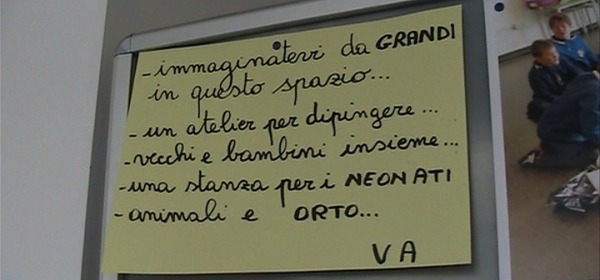 - immaginatevi da GRANDI
in questo spazio...
- un atelier per dipingere...
- vecchi e bambini insieme...
- una stanza per i NEONATI
- animali e ORTO...
VA